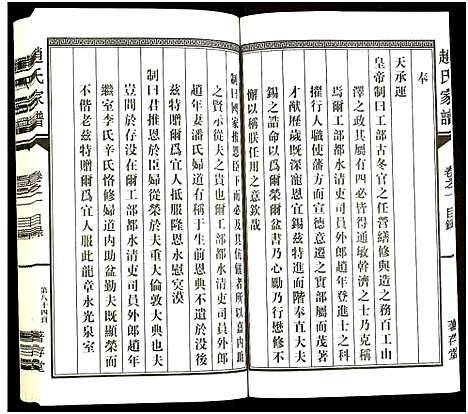 趙氏家譜
卷之一 目錄
奉
天承運
皇帝制曰工部古冬官之任營繕修與造之務百工山
澤之政其屬有四必皆得通敏幹濟之士乃克稱
焉爾工部都水清吏司員外郎趙年登進士之科
擢行人職使藩方而宣德意遵之變遷屬而茂著
才猷歷歲既深宜錫茲特進而階奉直大夫
錫之誥命以爲爾榮爾盆書乃心勵乃行懋修不
懈以稱朕任用之意欽哉
制曰國家推恩臣下而必及其伉儷者所以嘉內助
之賢示從夫之義也爾工部都水清吏司員外郎
趙年妻潘氏婦道有稱于生前恩典不遺於沒後
茲特贈爾爲宜人抵服隆恩永慰冥漠
制曰君推恩於臣婦從榮於夫重大倫敦大典也夫
豈間於存沒在爾工部都水清吏司員外郎趙年
繼室李氏辛氏恪修婦道內助盆勤夫既顯榮而
不偕老茲特贈爾爲宜人服此龍章永光泉室
趙氏家譜
卷之一 目錄
第八十四頁